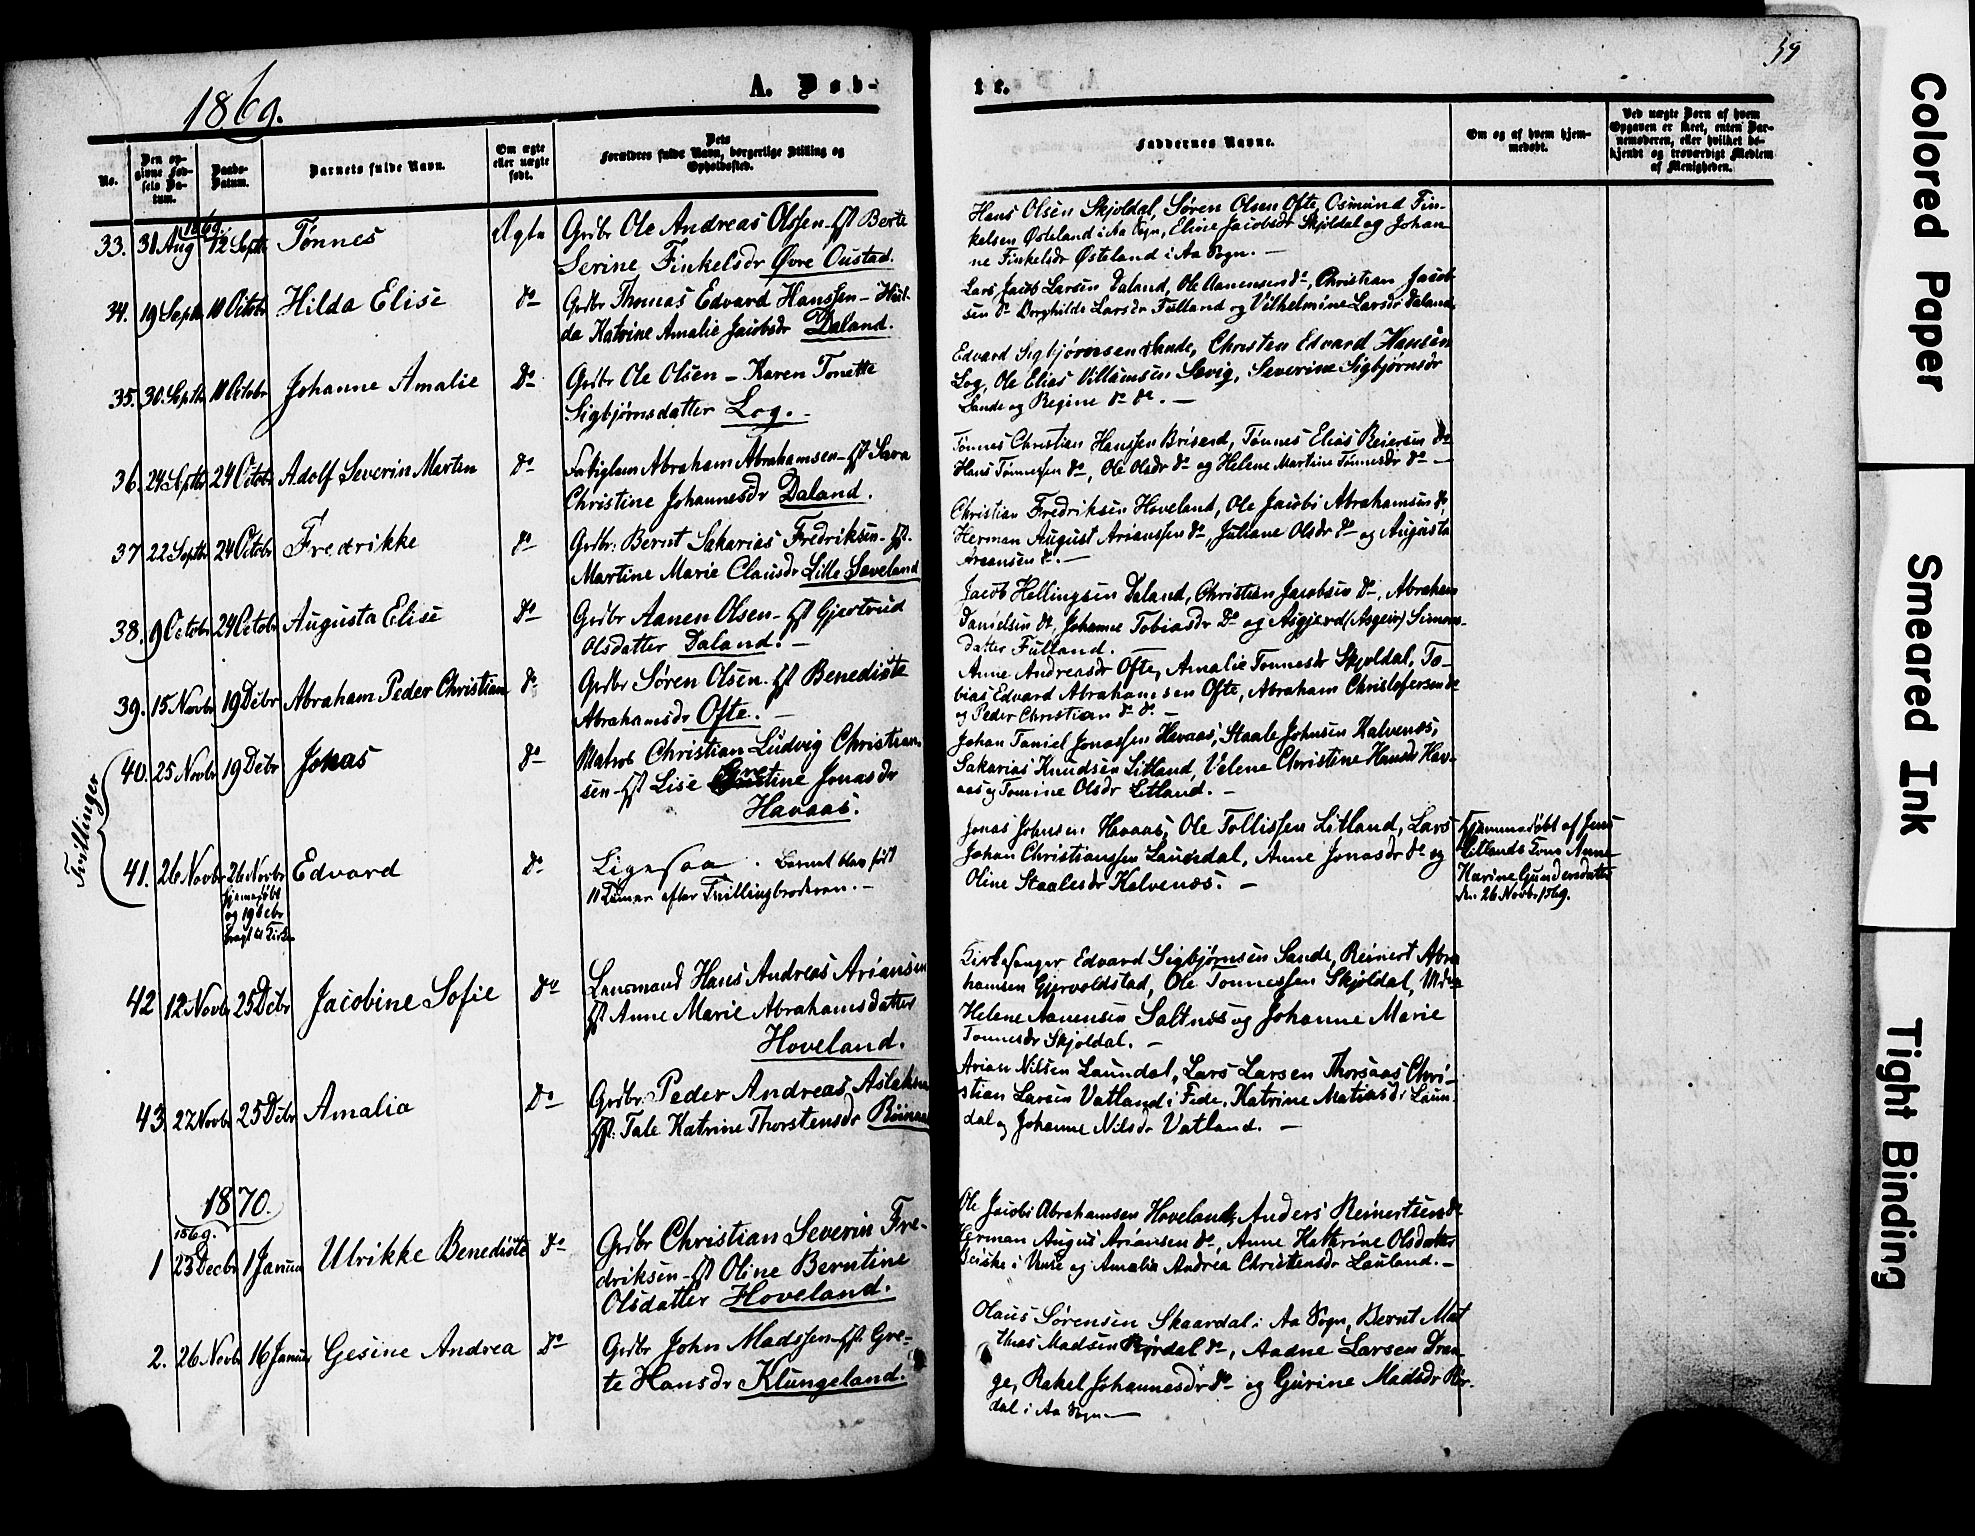 59
1869.
A. Døb-
te.
No.
Den op-
givne Fød-
sels Da-
tum.
Daabs-
Datum.
Barnets fulde Navn.
Om ægte
eller uægte
født.
Dets
Forældres fulde Navn, borgerlige Stilling og
Opholdssted.
Faddernes Navne.
Om og af hvem hjem-
medøbt.
Ved uægte Børn af hvem
Opgaven er skeet, enten Bar-
nemoderen, eller hvilket be-
kjendt og troværdigt Medlem
af Menigheden.
1869.
33. 31 Aug 12 Septbr Tønnes Ægte Grdbr Ole Andreas Olssen - Hst Berte
Serine Finkelsdr Øvre Oustad.
Hans Olsen Skjoldal, Søren Olsen Ofte, Osmund Fin-
kelsen Østeland i Aa Sogn, Eline Jacobsdr Skjoldal og Johan
ne Finkelsdr Østeland i Aa Sogn. -
34. 19 Septbr 10 Octobr Hilda Elise do Grdbr Thomas Edvard Hanssen - Hul-
da Katrine Amalie Jacobsdr Daland.
Lars Jacob Larsen Daland, Ole Aanensen do, Christian Jacob
sen do Borghilde Larsdr Fulland og Vilhelmine Larsdr Daland
35. 30 Septbr 10 Octobr Johanne Amalie Do Grdbr Ole Olsen - Karen Tonette
Sigbjørnsdatter Log. -
Edvard Sigbjørnsen Sande, Christen Edvard Hansen
Log, Ole Elias Villumsen Sevig, Severine Sigbjørnsdr
Sande og Regine do do. -
36. 24 Septbr 24 Octobr Adolf Severin Martin do Fattiglem Abraham Abrahamsen - Hst Sara
Christine Johannesdr Daland.
Tønnes Christian Hanssen Brisand, Tønnes Elias Reiersen do
Hans Tønnessen do, Ole Olsdr do og Helene Martine Tønnesdr do -
37 22 Septbr 24 Octobr Fredrikke do Grdbr: Bernt Sakarias Fredriksen - Hst.
Martine Marie Clausdr Lille Seveland
Christian Fredriksen Hoveland, Ole Jacobi Abrahamsen do,
Herman August Arianssen do, Juliane Olsdr do og Augusta
Ariansen do. -
38. 9 Octobr 24 Octobr Augusta Elise Do Grdbr Aanen Olsen - Hst Gjertrud
Olsdatter Daland. -
Jacob Hellingsen Daland, Christian Jacobsen Do, Abraham
Danielsen do, Johanne Tobiasdr Do og Asgjerd (Asgeir) Simons-
datter Fulland. -
39. 15 Novbr 19 Debr Abraham Peder Christian do Grdbr Søren Olsen - Hst Benedicte
Abrahamsdr Ofte. -
Anne Andreasdr Ofte, Amalie Tonnesdr Skjoldal, To-
bias Edvard Abrahamsen Ofte, Abraham Christofersen do
og Peder Christian do do. -
Tvillinger
40. 25 Novbr 19 Debr Jonas do Matros Christian Ludvig Christian-
sen - Hst Lise Gretine Jonasdr
Havaas.
Johan Daniel Jonassen Havaas, Staale Johnsen Kalvenæs,
Sakarias Knudsen Litland, Velene Christine Hansdr Hav-
aas og Tomine Olsdr Litland. -
41. 26 Novbr 26 Novbr Edvard do Ligesaa. Barnet blev født
hjemmedøbt
og 19 Debr
bragt til Kirken
11 Timer efter Tvillingbroderen. -
Jonas Johnsen Havaas, Ole Tollissen Litland, Lars
Johan Christianssen Laundal, Anne Jonasdr do og
Oline Staalesdr Kalvenæs. -
Hjemmedøbt af Jens
Litlands Kone Anne
Karine Gundersdatter
den 26 Novbr 1869.
42 12 Novbr 25 Debr Jacobine Sofie Do Lensmand Hans Andreas Ariansen
Hst Anne Marie Abrahamsdatter
Hoveland.
Kirkesanger Edvard Sigbjørnsen Sande, Reinert Abra
hamsen Gjervoldstad, Ole Tonnessen Skjoldal, Mdm
Helene Aanensen Saltnes og Johanne Marie
Tonnesdr Skjoldal. -
43 27 Novbr 25 Debr Amalia Do Grdbr. Peder Andreas Aslaksen
Hst: Tale Katrine Thorstensdr
Arian Nilsen Laundal, Lars Larsen Thorsaas, Chri-
stian Larsen Vatland i Fede, Katrine Matiasdr Laun-
dal og Johanne Nilsdr Vatland. -
1870.
1869.
1 23 Decbr 1 Januar Ulrikke Benedicte Do Grdbr Christian Severin Fre-
driksen - Hst Oline Berntine
Olsdatter Hoveland.
Ole Jacobi Abrahamsen Hoveland, Anders Reinertsen do
Herman August Ariansen do, Anne Kathrine Olsdatter
i Vanse og Amalia Andrea Christensdr Lauland. -
2. 26 Novbr 16 Januar Gesine Andrea Do Grdbr John Madssen - Hst. Gre-
te Hansdr Klungeland.
Olaus Sørensen Skaardal i Aa Sogn, Bernt Mat
thias Madsen Rørdal do, Aadne Larsen Dran-
ge, Rakel Johannesdr do og Gurine Madsdr Rør-
dal i Aa Sogn -
Colored Paper
Smeared Ink
Tight Binding